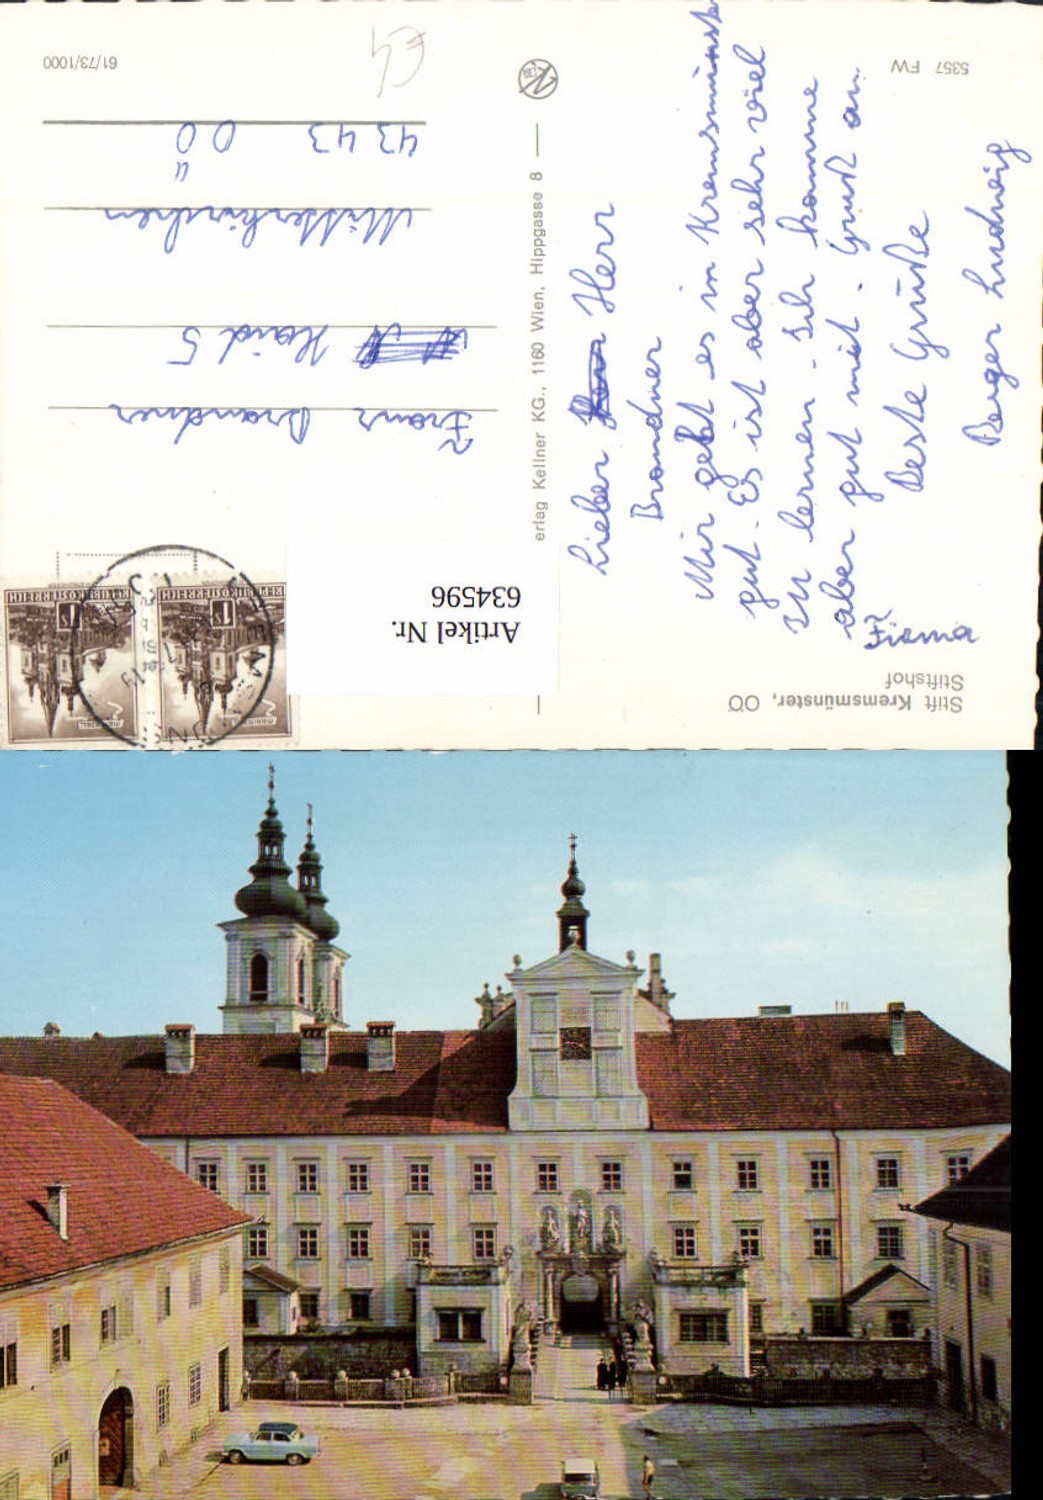 Stift Kremsmünster, OÖ
Stiftshof
Lieber Herr
Brandner
Mir geht es in Kremsmünster
gut. Es ist aber sehr viel
zu lernen. Ich komme
aber gut mit. Gruß an
Firma
Beste Grüße
Berger Ludwig
5357 FW
erlag Kellner KG., 1160 Wien, Hippgasse 8
Artikel Nr.
634596
REPUBLIK ÖSTERREICH
1S
REPUBLIK ÖSTERREICH
1S
Franz Brandner
Haid 5
Mitterkirchen
4343 OÖ
61/73/1000
€4